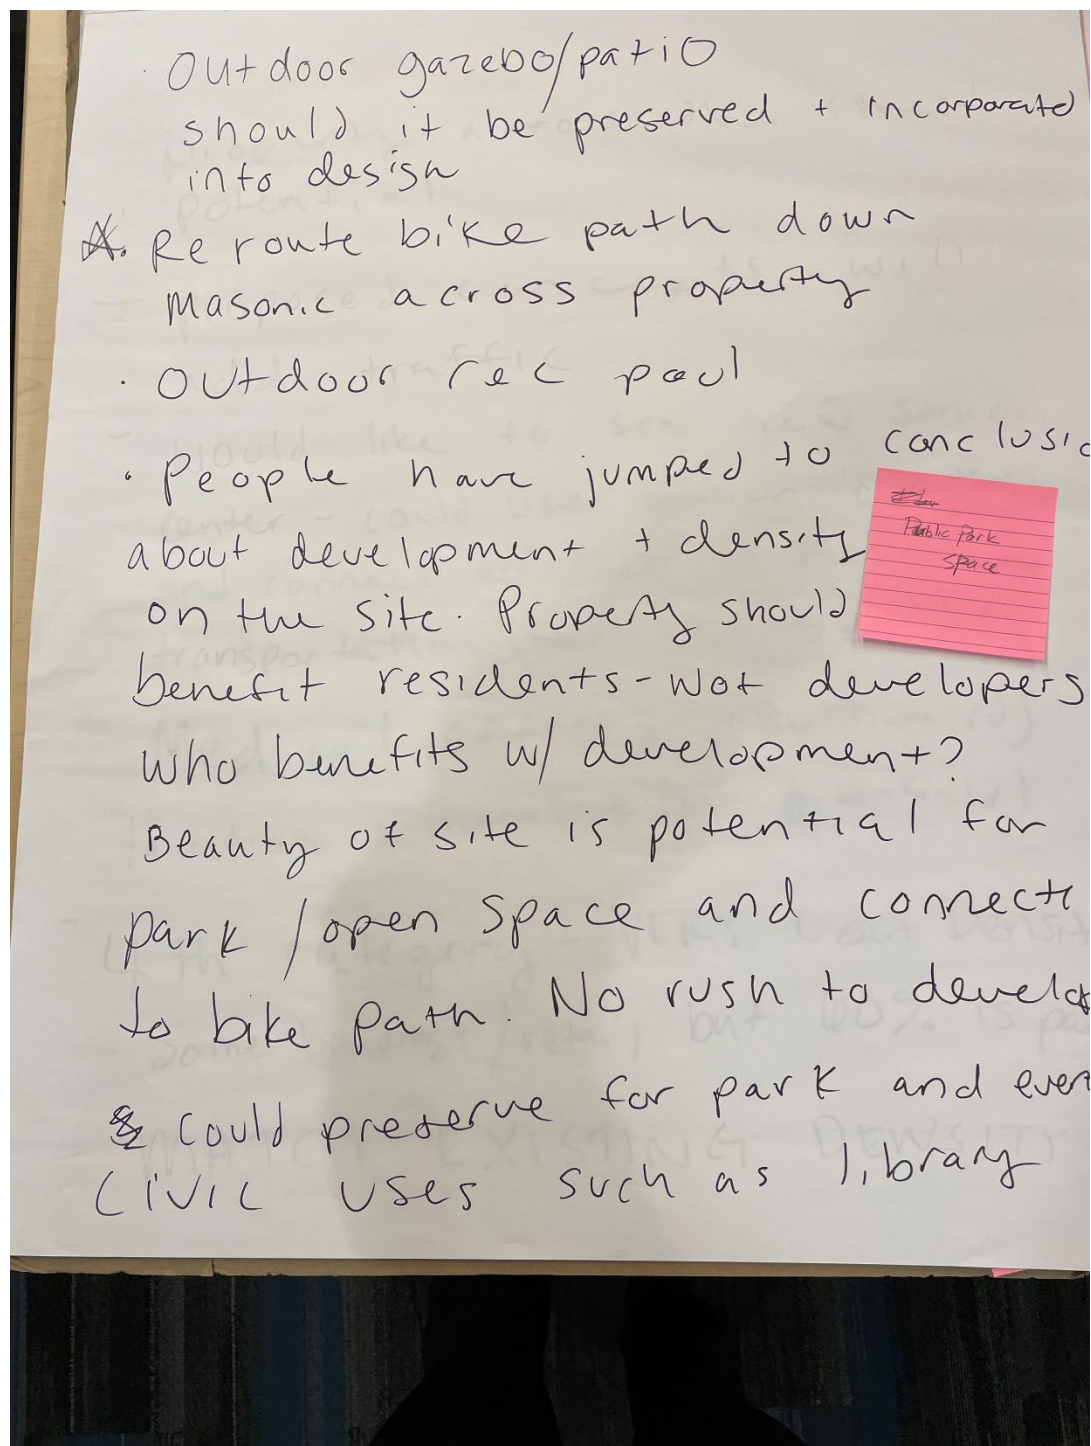 · Outdoor gazebo/patio
should it be preserved + incorporated
into design
Reroute bike path down
Masonic across property
· Outdoor rec pool
· People have jumped to conclusio
about development + density
on the site. Property should
benefit residents - not developers
who benefits w/ development?
Beauty of site is potential for
park / open space and connecti
to bike path. No rush to develop
Could preserve for park and even
civic uses such as library
Public Park
Space